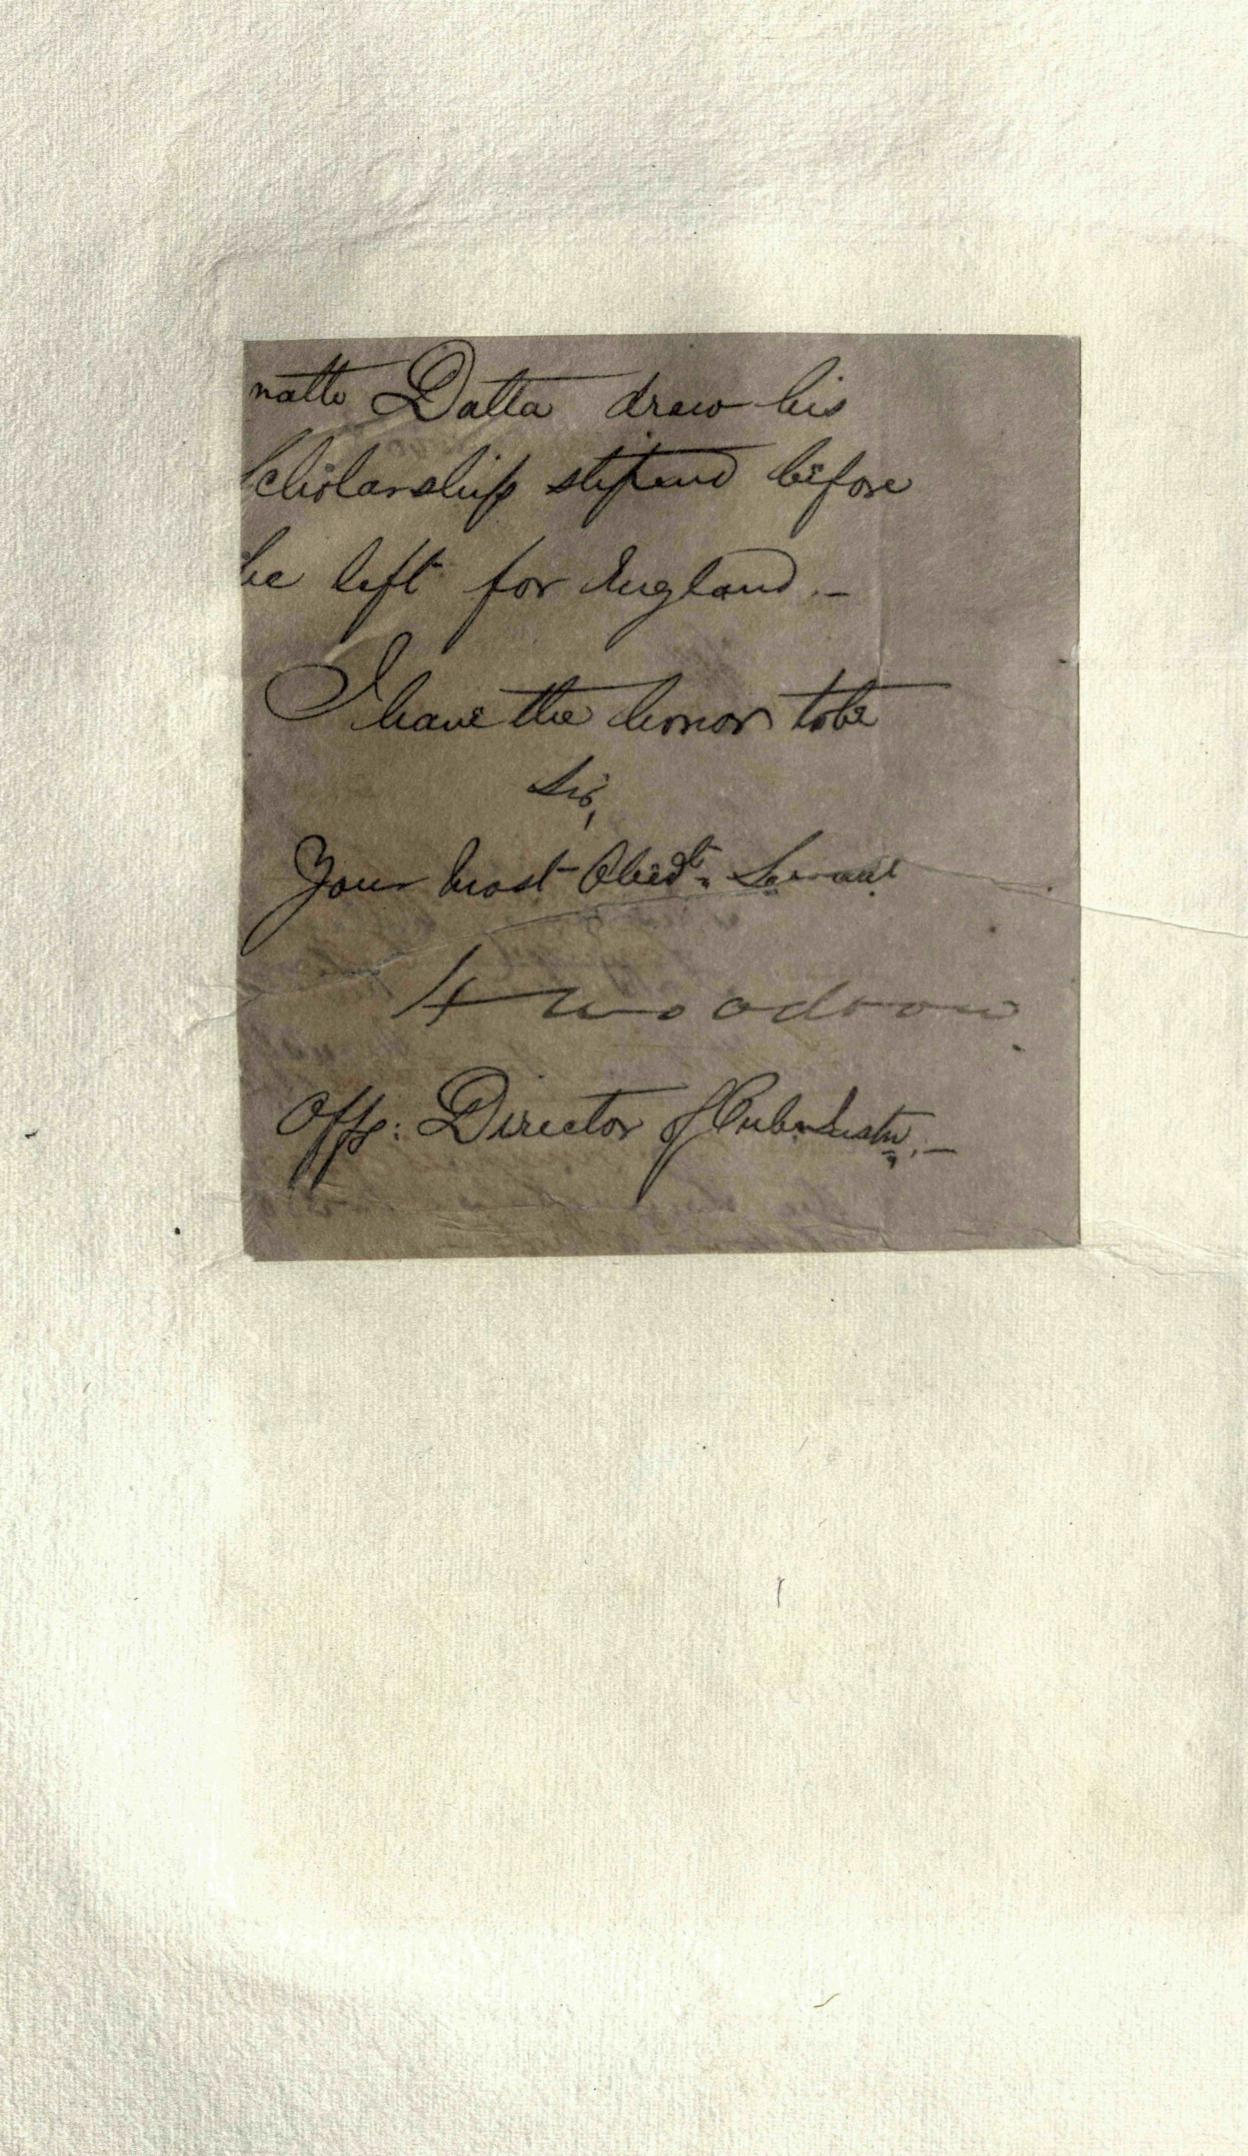 nath Datta drew his
Scholarship stipend before
he left for England. —
I have the honor to be
Sir,
Your most Obedt. Servant
H Woodrow
Offg: Director of Pub. Instn. —